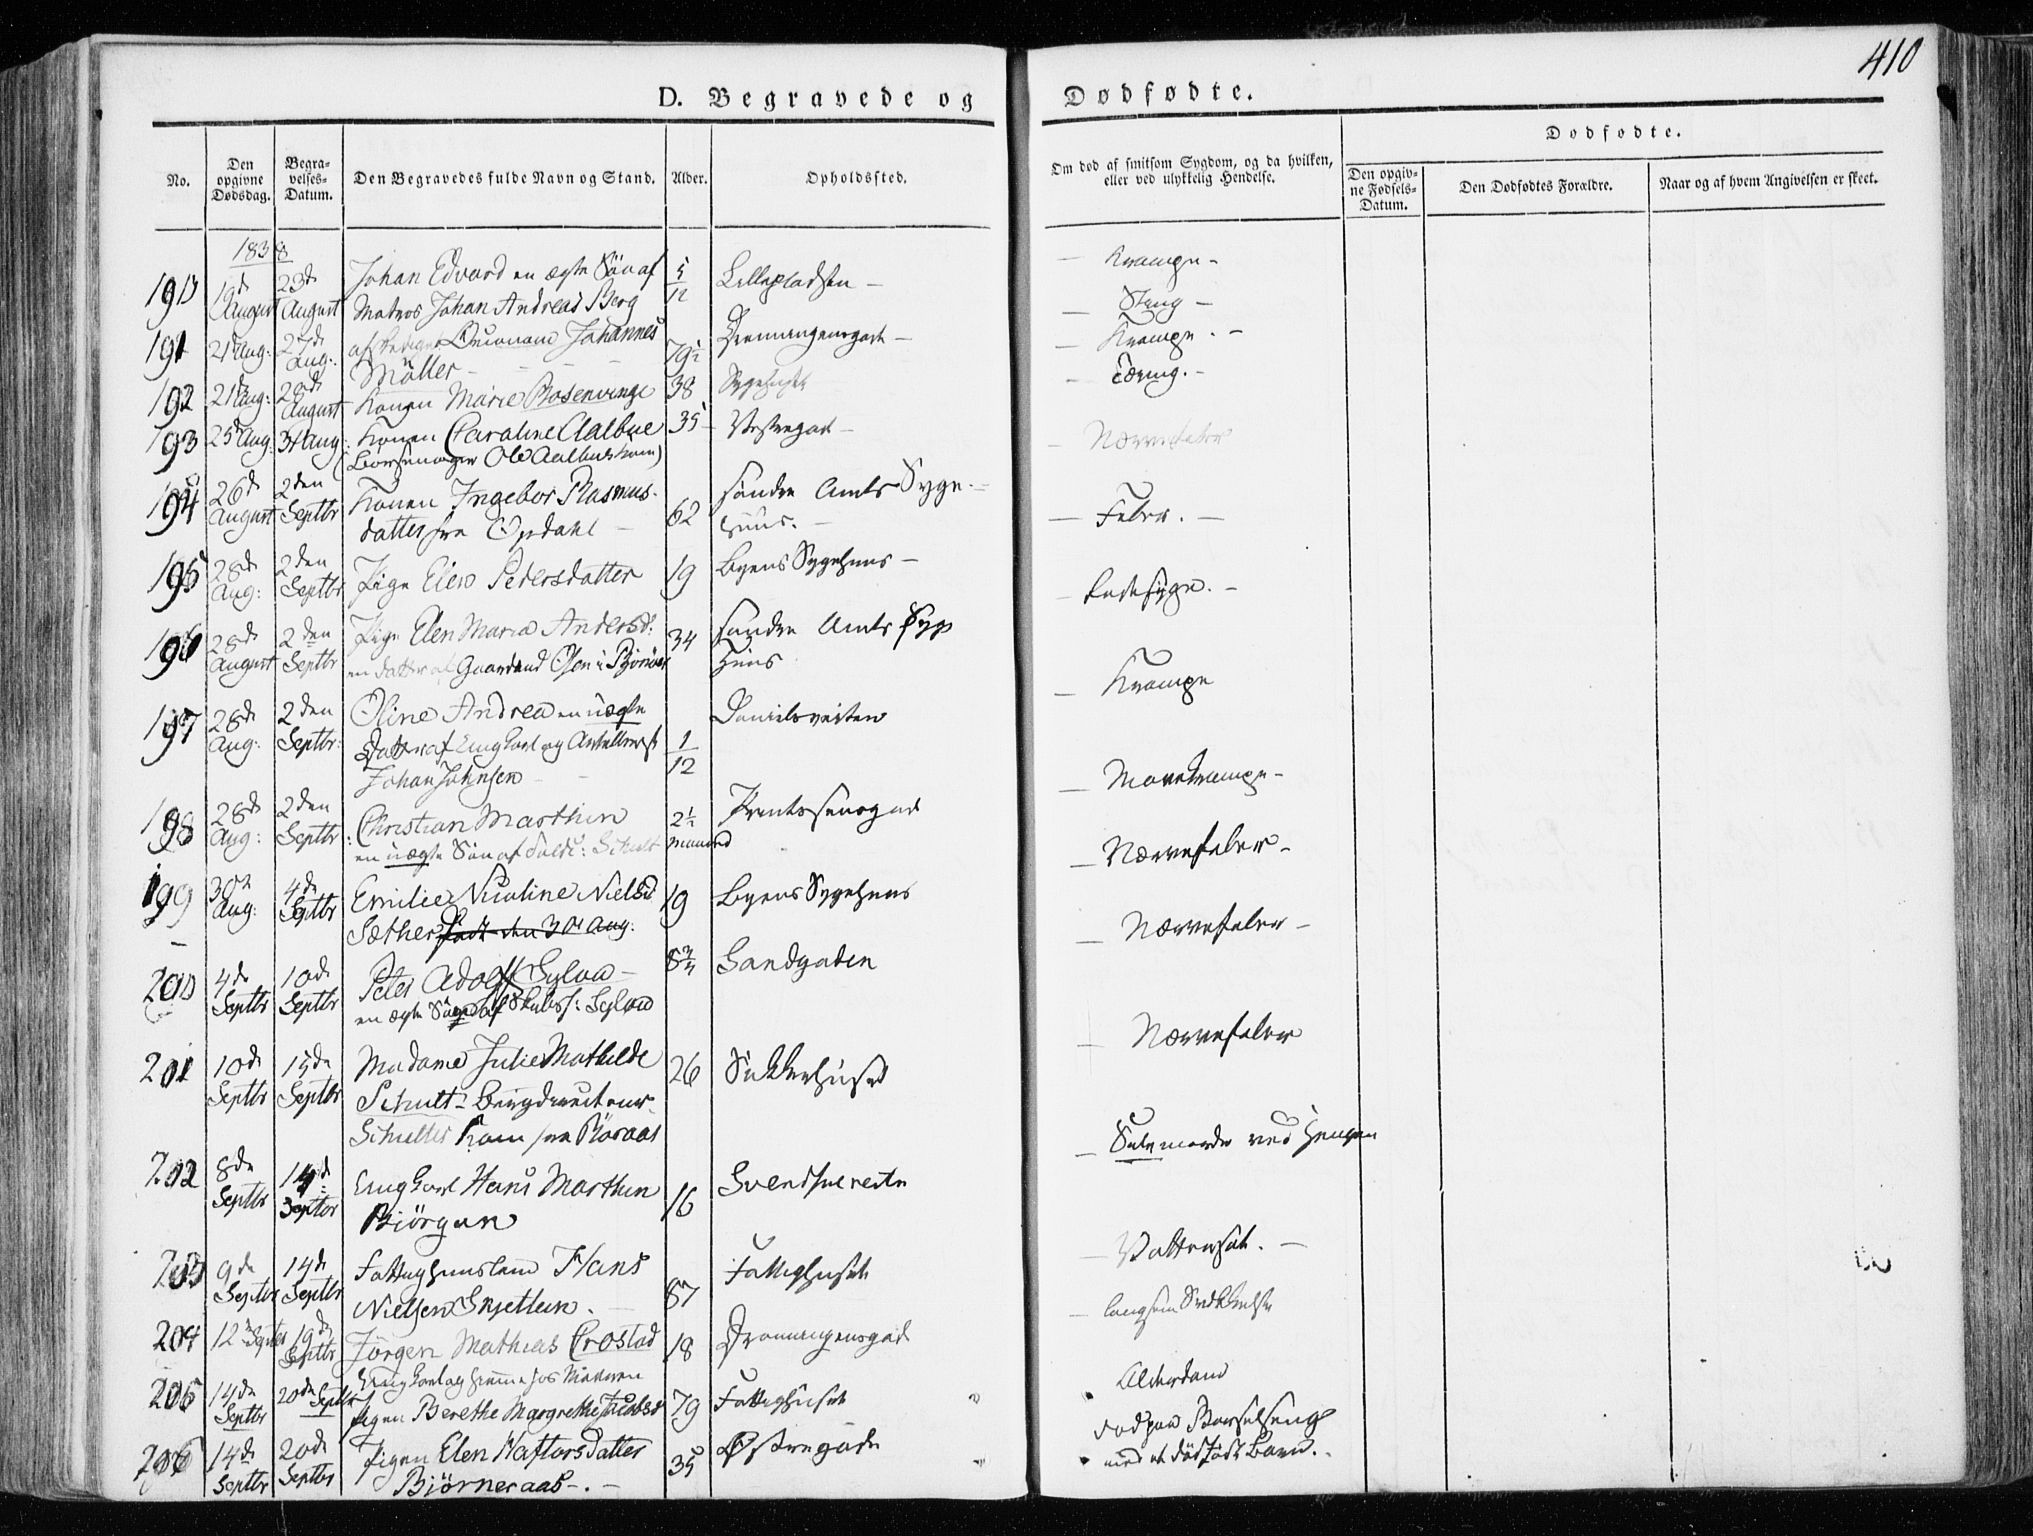 410
D. Begravede og Dødfødte.
Dødfødte.
No.
Den opgivne Dødsdag.
Begravelses-Datum.
Den Begravedes fulde Navn og Stand.
Alder.
Opholdssted.
Om død af smitsom Sygdom, og da hvilken, eller ved ulykkelig Hendelse.
Den opgivne Fødsels-Datum.
Den Dødfødtes Forældre.
Naar og af hvem Angivelsen er skeet.
1838
190 19de August 23de August Johan Edvard en ægte Søn af 5/12 Lillepladsen - Krampe -
Matros Johan Andreas Berg
191 21de Aug: 27de Aug: Johannes 79½ Dronningensgade -
Möller
192 21de Aug: 28de August Konen Marie Rosenvinge 38 Sygehuset Tæring. -
193 25de Aug: 31 Aug: Konen Caroline Aalbue 35 Vestregade - Nervefeber
Ole Aalbues kone)
194 26de August 2den Septbr Konen Ingebor Rasmus- 62 søndre Amts Syge-
datter fra Opdahl - huus. - Feber. -
195 28de Aug: 2den Septbr Pige Elen Pedersdatter 19 Byens Sygehuus - Radesyge. -
196 28de August 2den Septbr Pige Elen Maria Andersd: 34 søndre Amts Syge
en datter af Gaardmd Olsen i Huus Krampe
197 28de Aug: 2den Septbr: Oline Andrea en uægte 1/12 Danielsveiten
Datter af Ungkarl og
Johan Johnsen - Mavekrampe -
198 28de Aug: 2den Septbr: Christian Marthin 2½ maaned
en uægte Søn af Schult Nervefeber -
199 30te Aug: 4de Septbr Emilie Nicoline Nielsd 19 Byens Sygehuus
Sæther født den 30te Aug: Nervefeber -
200 4de Septbr 10de Septbr Peter Adolf Sylow - 8¾ Sandgaden
en ægte Søn af Sylow Nervefeber
201 10de Septbr 15de Septbr Madame Julie Mathilde 26 Sukkerhuset
Schult - Bergdirecteur
Schultes Kone fra Röraas Selvmorde ved Hengen
202 8de Septbr 14de Septbr Ungkarl Hans Marthin 16
Björgum Vattersot. -
203 9de Septbr 14de Septbr Fattighuuslem Hans 87 Fattighuset
Nielsen Skjetlein. -
204 12te Septbr 19de Septbr Jörgen Mathias Crostad 18 Dronningensgade
205 14de Septbr 20de Septbr Pigen Berethe Margrethe Jacobsd 79 Fattighuset Alderdom
206 14de Septbr 20de Septbr Pigen Elen Haftorsdatter 35 Østregade død paa Barselseng
Björneraas -. - med et dødfødt Barn. -